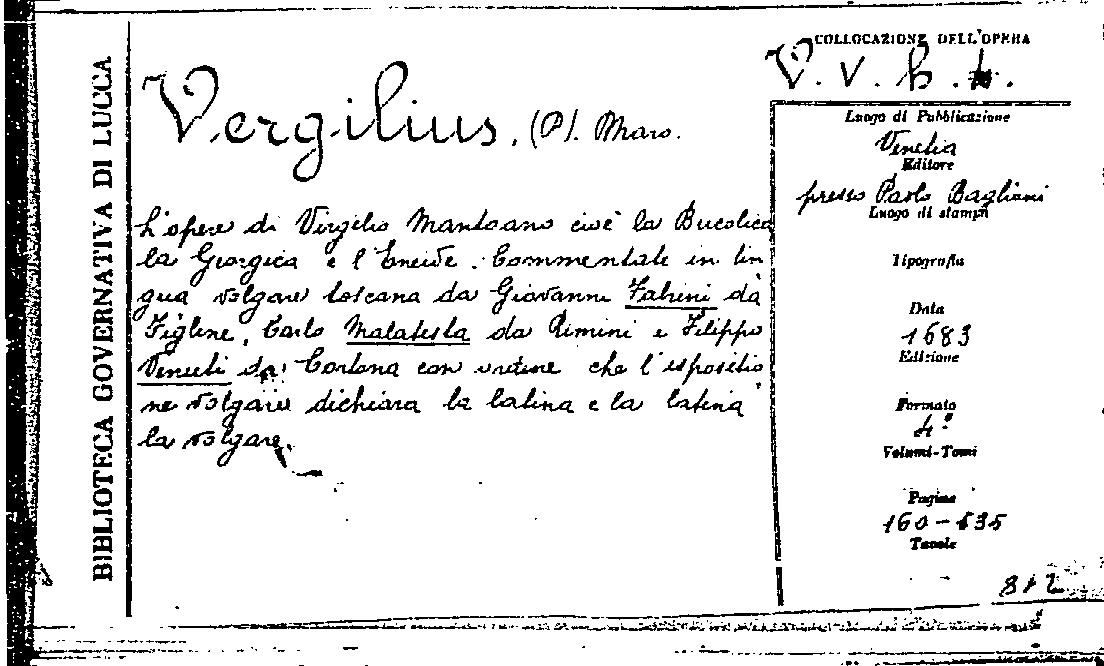 BIBLIOTECA GOVERNATIVA DI LUCCA
Vergilius, (P). Maro.
L'opere di Virgilio Mantoano cioè la Bucolica
la Giorgica e l'Eneide. Commentate in lin
gua volgare toscana da Giovanni Fabrini da
Figline, Carlo Malatesta da Rimini e Filippo
Venuti da Cortona con ordine che l'espositio
ne volgare dichiara la latina e la latina
la volgare.
COLLOCAZIONE DELL'OPERA
V. v. h.
Luogo di Pubblicazione
Venetia
Editore
presso Paolo Baglioni
Luogo di stampa
Tipografia
Data
1683
Edizione
Formato
4°
Volumi-Tomi
Pagine
160-
Tavole
812